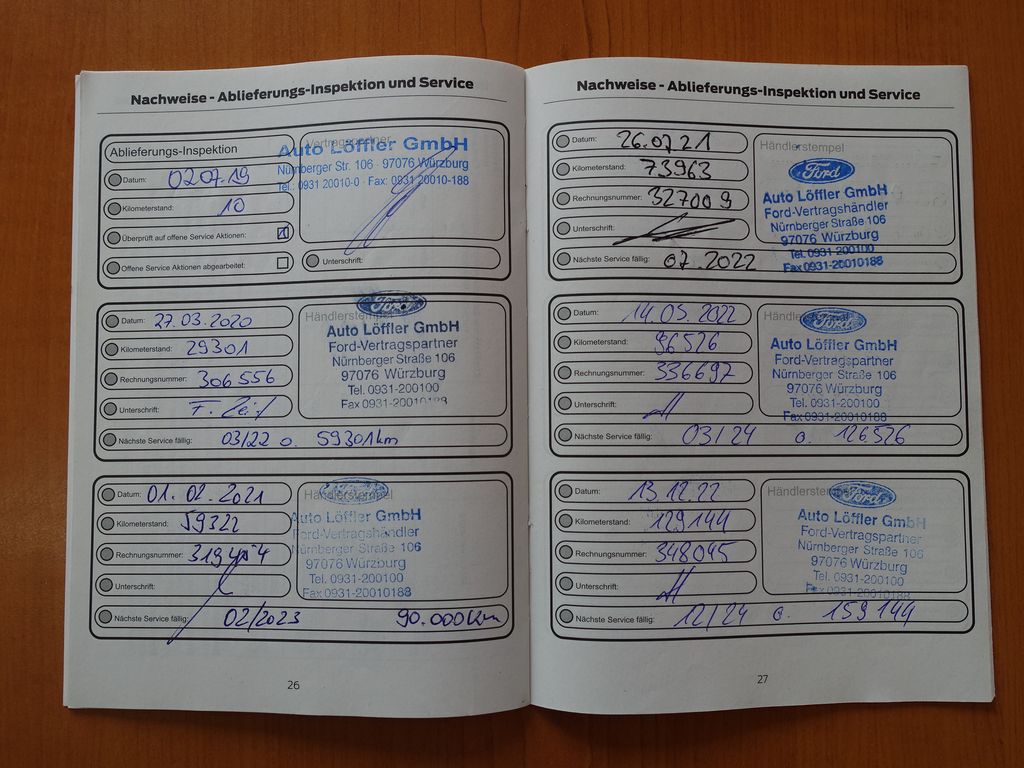 Nachweise - Ablieferungs-Inspektion und Service
Ablieferungs-Inspektion
Datum: 02.07.19
Kilometerstand: 10
Überprüft auf offene Service Aktionen:
Offene Service Aktionen abgearbeitet:
Vertragspartner
Auto Löffler GmbH
Nürnberger Str. 106 · 97076 Würzburg
Tel. 0931 20010-0 · Fax: 0931 20010-188
Unterschrift:
Datum: 27.03.2020
Kilometerstand: 29301
Rechnungsnummer: 306556
Unterschrift:
Nächste Service fällig: 03/22 o. 59301km
Händlerstempel
Ford
Auto Löffler GmbH
Ford-Vertragspartner
Nürnberger Straße 106
97076 Würzburg
Tel. 0931-200100
Fax 0931-20010188
Datum: 01.02.2021
Kilometerstand: 59322
Rechnungsnummer:
Unterschrift:
Nächste Service fällig: 02/2023 90.000km
Händlerstempel
Auto Löffler GmbH
Ford-Vertragshändler
Nürnberger Straße 106
97076 Würzburg
Tel. 0931-200100
Fax 0931-20010188
26
Nachweise - Ablieferungs-Inspektion und Service
Datum: 26.07.21
Kilometerstand: 73963
Rechnungsnummer: 327009
Unterschrift:
Nächste Service fällig: 07.2022
Händlerstempel
Ford
Auto Löffler GmbH
Ford-Vertragshändler
Nürnberger Straße 106
97076 Würzburg
Tel. 0931-200100
Fax 0931-20010188
Datum: 14.05.2022
Kilometerstand: 96526
Rechnungsnummer: 336697
Unterschrift:
Nächste Service fällig: 03/24 o. 126526
Händlerstempel
Ford
Auto Löffler GmbH
Ford-Vertragspartner
Nürnberger Straße 106
97076 Würzburg
Tel. 0931-200100
Fax 0931-20010188
Datum: 13.12.22
Kilometerstand: 129144
Rechnungsnummer: 348095
Unterschrift:
Nächste Service fällig: 12/24 o. 159144
Händlerstempel
Ford
Auto Löffler GmbH
Ford-Vertragspartner
Nürnberger Straße 106
97076 Würzburg
Tel. 0931-200100
Fax 0931-20010188
27